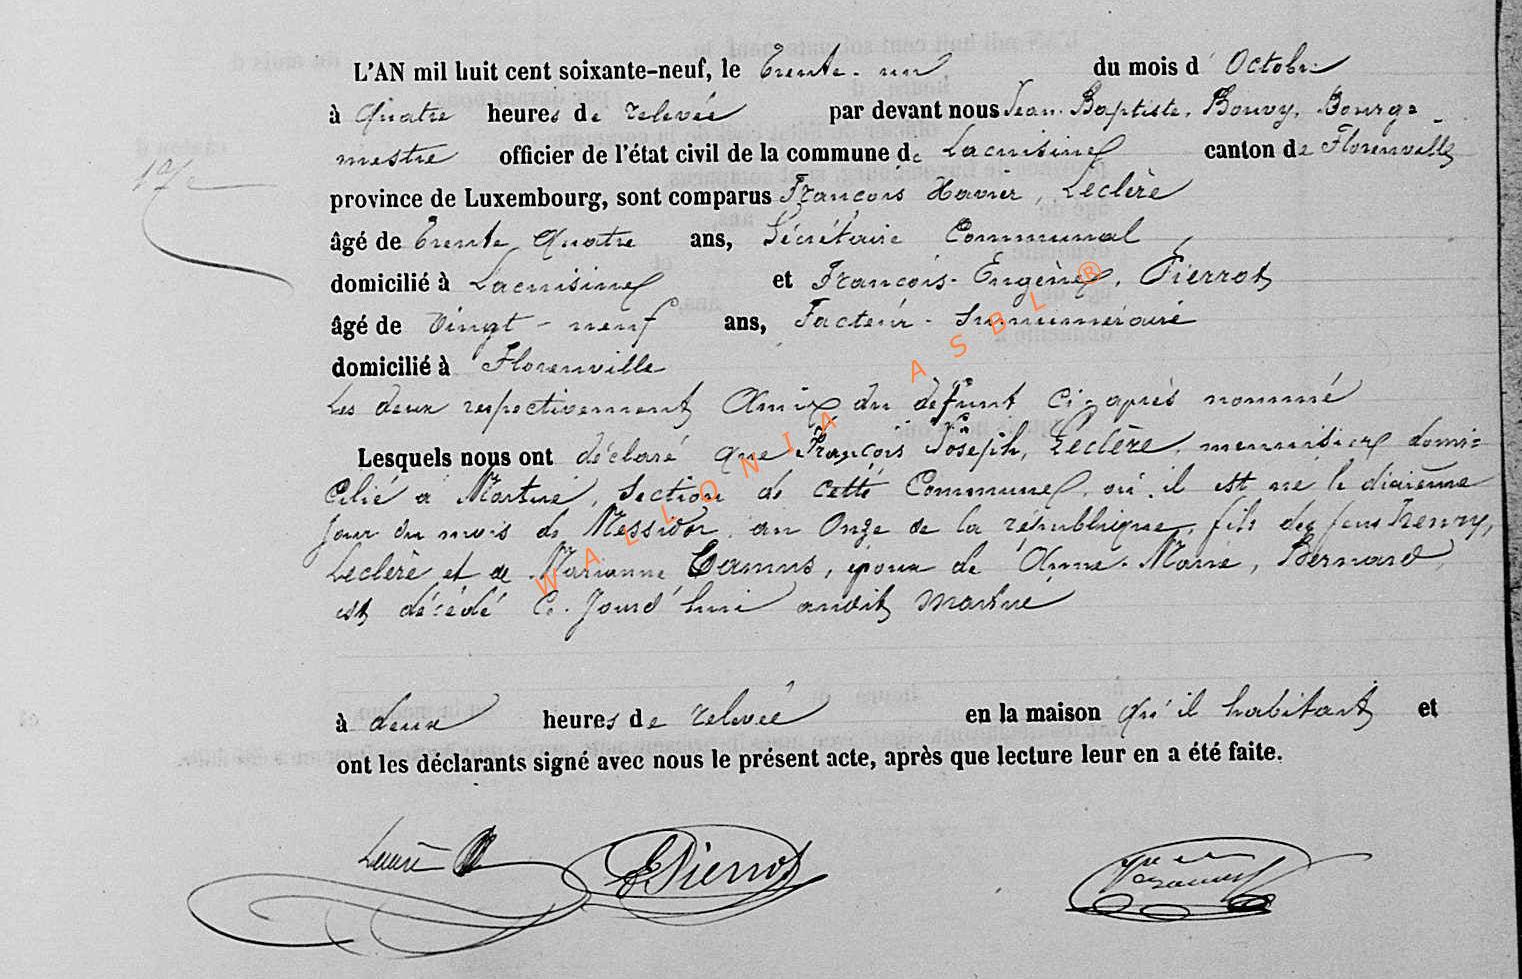 L'AN mil huit cent soixante-neuf, le Trente-un du mois d'Octobre
à Quatre heures de relevée par devant nous Jean-Baptiste, Bouvy, Bourg=
mestre officier de l'état civil de la commune de Lacuisine canton de Florenville
17e
province de Luxembourg, sont comparus François Xavier, Leclère
âgé de Trente Quatre ans, Sécrétaire Communal
domicilié à Lacuisine et François-Eugène, Pierrot
âgé de Vingt-neuf ans, Facteur-Surnuméraire
domicilié à Florenville
Les deux respectivement Amis du défunt ci-après nommé
Lesquels nous ont déclaré que François Joseph, Leclère, menuisier domi=
cilié à Martué, Section de cette Commune, où il est né le dixième
jour du mois de Messidor, an Onze de la république, fils des feus Henry,
Leclère et de Marianne Camus, époux de Anne-Marie, Bernard,
est décédé ce-jourd'hui audit Martué
à deux heures de relevée en la maison qu'il habitait et
ont les déclarants signé avec nous le présent acte, après que lecture leur en a été faite.
Leclère EPierrot
WALLONIA ASBL ®